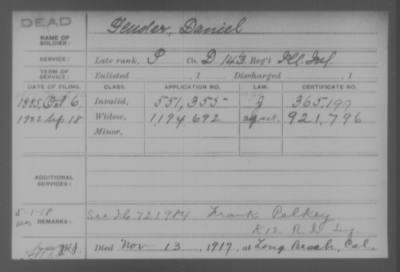 DEAD
NAME OF SOLDIER: Fender, Daniel
SERVICE: Late rank, P Co. D 143 Reg't Ill. Inf.
TERM OF SERVICE: Enlisted , 1 Discharged , 1
DATE OF FILING. CLASS. APPLICATION NO. LAW. CERTIFICATE NO.
Invalid, 551,355 365,199
Sep 18 Widow, 1,194,692 921,796
Minor,
ADDITIONAL SERVICES:
5-1-18
REMARKS: See 721984 Frank Pelkey
K 12
Died Nov 13, 1917, at Long Beach, Cal.